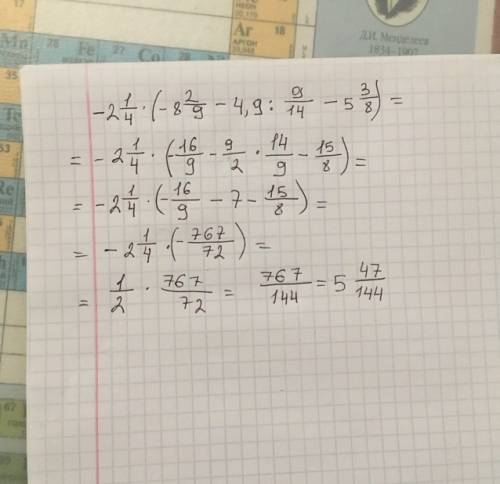 Mn 26 Fe 28 Co
НЕОН
20,170
Ar 18
АРГОН
39,948
Д.И. Менделеев
1834–1907
35
53
Re
67
-2 1/4 · (-8 2/9 - 4,9 : 9/14 - 5 3/8) =
= -2 1/4 · (16/9 - 9/2 · 14/9 - 15/8) =
= -2 1/4 · (-16/9 - 7 - 15/8) =
= -2 1/4 · (-767/72) =
= 1/2 · 767/72 = 767/144 = 5 47/144